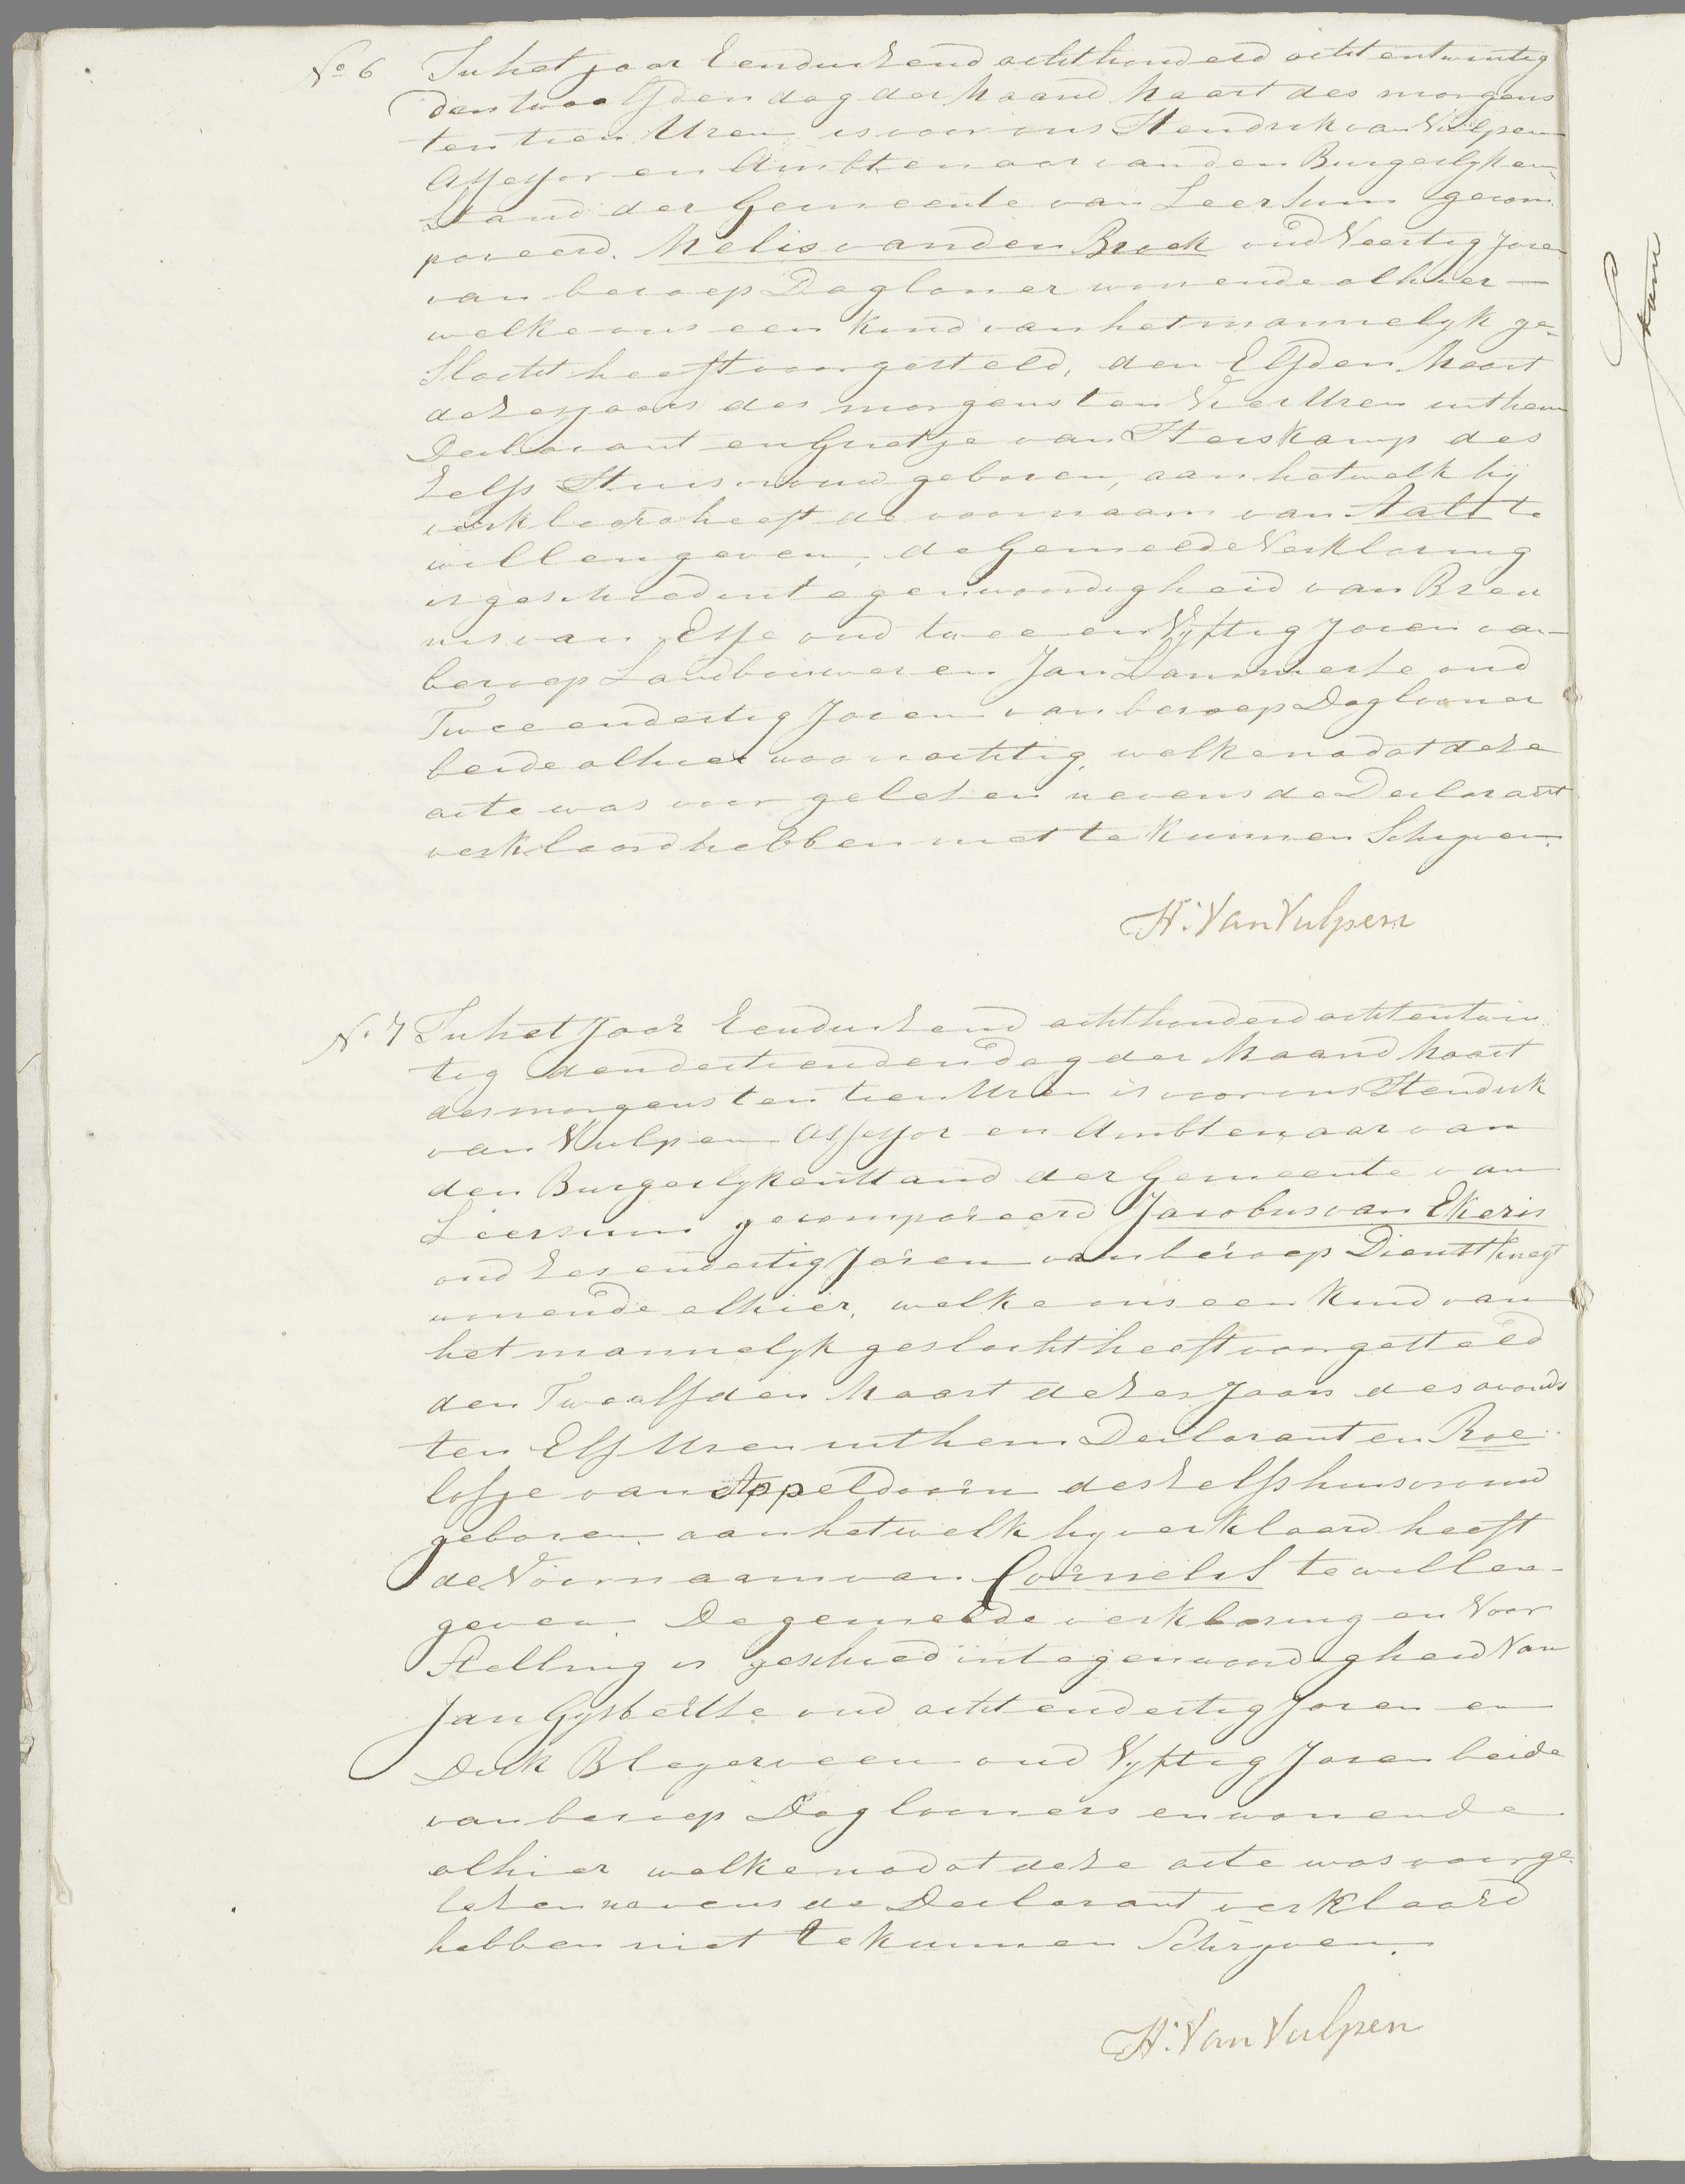 No 6 In het jaar Eenduizend achthonderd achtentwintig
den twaalfden dag der Maand Maart des morgens
ten tien Uren is voor ons Hendrik van Vulpen
Assessor en Ambtenaar van den Burgerlyken
Stand der Gemeente van Leersum gecom
pareerd. Melis van den Broek oud Veertig Jaren
van beroep Dagloner wonende alhier
welke ons een kind van het mannelyk ge-
slacht heeft voorgesteld, den Elfden Maart
dezes jaars des morgens ten Vier Uren uit hem
Declarant en Grietje van Herskamp des
zelfs Huisvrouw geboren, aan hetwelk hij
verklaard heeft de voornaam van Aalt te
willen geven, de Gemeelde Verklaring
is geschied in tegenwoordigheid van Breu
nis van Esse oud twee en Vyftig Jaren van
beroep Landbouwer en Jan Lammerse oud
Twee en dertig Jaren van beroep Daglooner
beide alhier woonachtig, welke nadat deze
acte was voorgelezen nevens de Declarant
verklaard hebben niet te kunnen Schryven.
H. Van Vulpen
No. 7 In het Jaar Eenduizend achthonderd achtentwin
tig den dertienden dag der Maand Maart
des morgens ten tien Uren is voor ons Hendrik
van Vulpen Assessor en Ambtenaar van
den Burgerlyken Stand der Gemeente van
Leersum gecompareerd Jacobus van Ekeris
oud zes en dertig Jaren van beroep Dienstknegt
wonende alhier, welke ons een kind van
het mannelyk geslacht heeft voorgesteld
den Twaalfden Maart dezes Jaars des avonds
ten Elf Uren uit hem Declarant en Roe
lofje van Appeldoorn deszelfs huisvrouw
geboren, aan hetwelk hy verklaard heeft
de Voornaam van Cornelis te willen
geven. De gemeelde verklaring en Voor
stelling is geschied in tegenwoordigheid Van
Jan Gysbertse oud acht en dertig Jaren en
Dirk Blegerveen oud Vyftig Jaren beide
van beroep Daglooners en wonende
alhier welke nadat deze acte was voorge
lezen nevens de Declarant verklaard
hebben niet te kunnen Schryven.
H. Van Vulpen